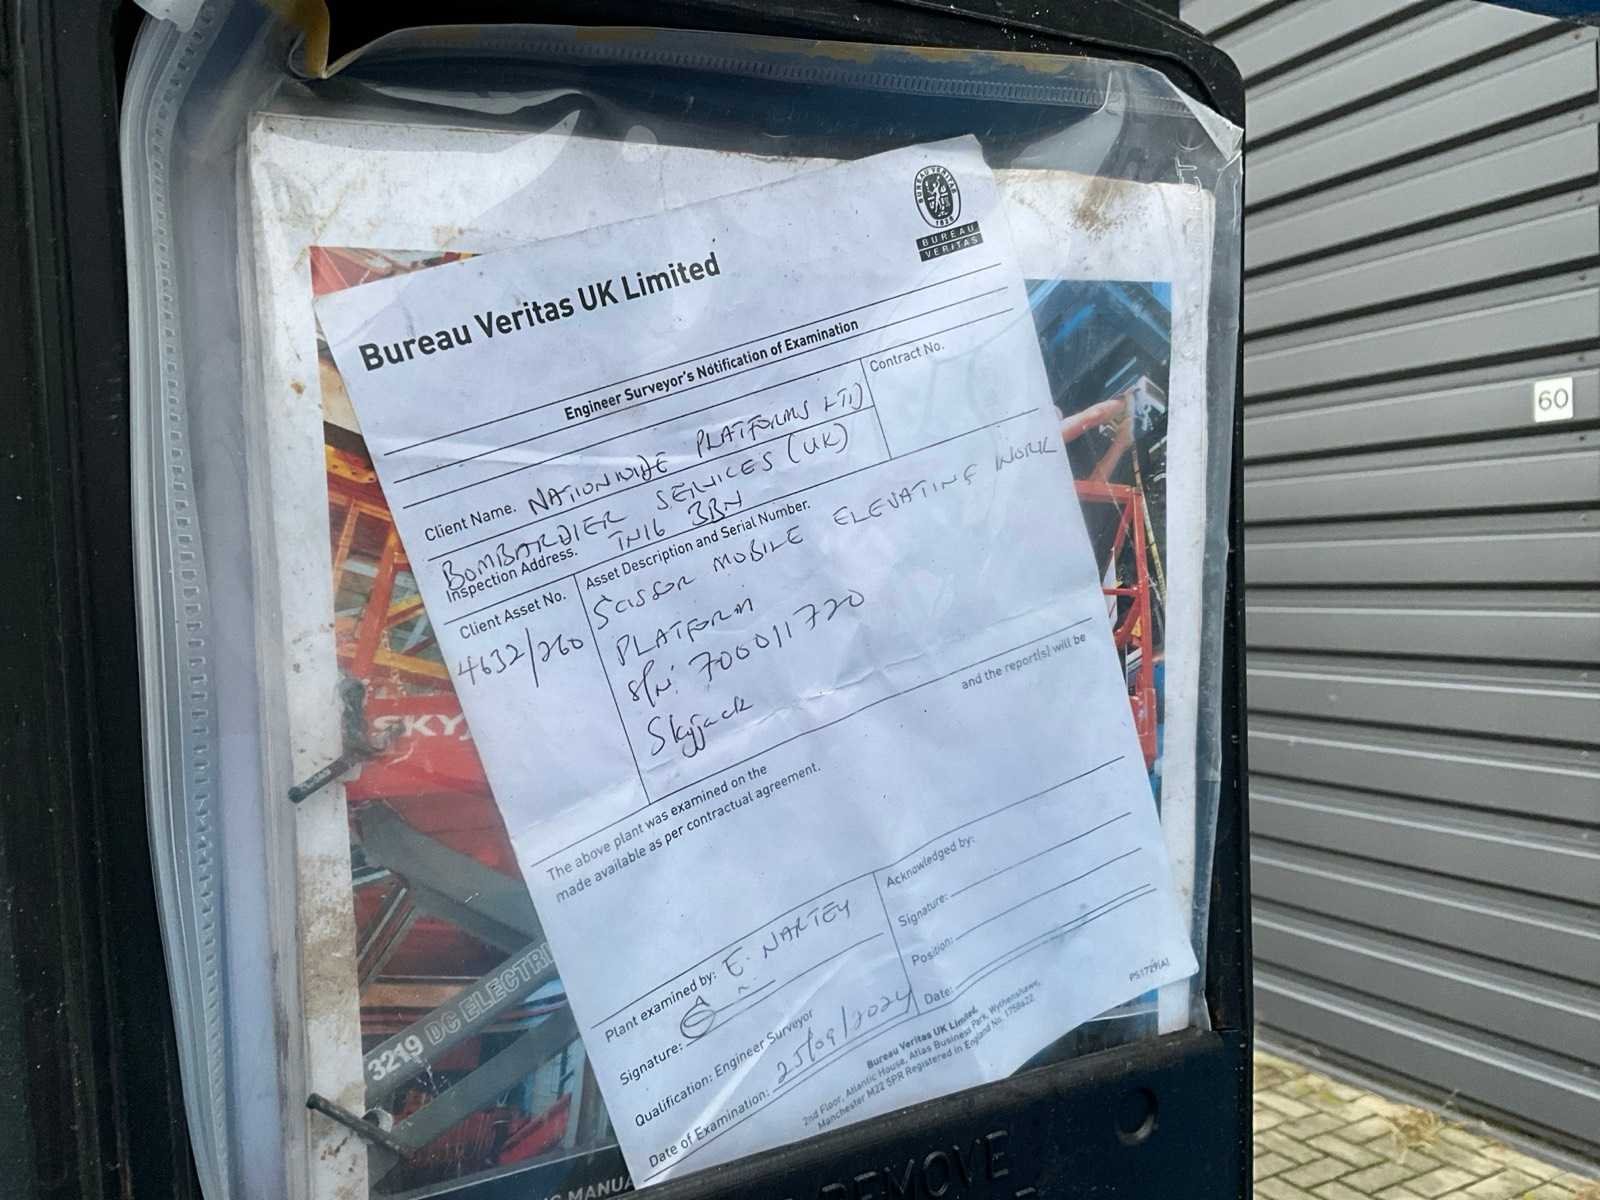 BUREAU VERITAS
1828
BUREAU
VERITAS
Bureau Veritas UK Limited
Engineer Surveyor's Notification of Examination
Client Name. NATIONWIDE PLATFORMS LTD
Contract No.
BOMBARDIER SERVICES (UK)
Inspection Address. TN16 3BN
Client Asset No.
Asset Description and Serial Number.
4632/260
SCISSOR MOBILE ELEVATING WORK
PLATFORM
S/N: 700011720
Skyjack
The above plant was examined on the and the report(s) will be
made available as per contractual agreement.
Plant examined by: E. NARTEY
Signature:
Qualification: Engineer Surveyor
Date of Examination: 25/09/2024
Acknowledged by:
Signature:
Position:
Date:
Bureau Veritas UK Limited,
2nd Floor, Atlantic House, Atlas Business Park, Wythenshawe,
Manchester M22 5PR Registered in England No. 1758622
PS1729(A)
SKYJ
3219 DC ELECTRI
MANUA
REMOVE
60